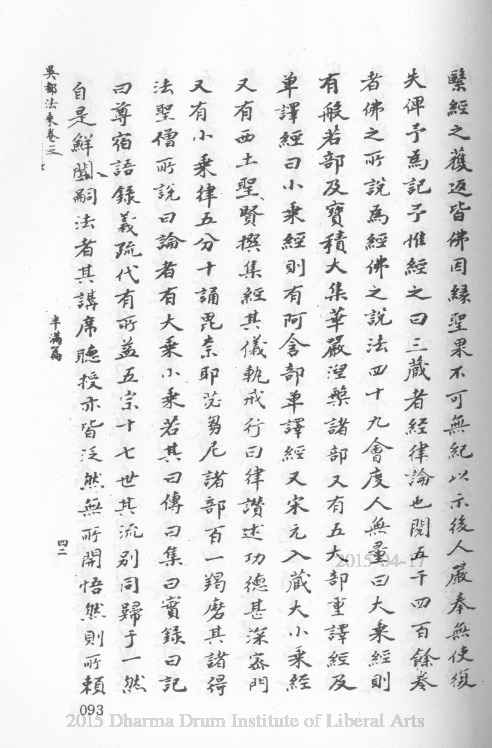 繄經之獲返皆佛因緣聖果不可無紀以示後人嚴奉無使復
失俾予為記予惟經之曰三藏者經律論也閱五千四百餘卷
者佛之所說為經佛之說法四十九會度人無量曰大乘經則
有般若部及寶積大集華嚴涅槃諸部又有五大部重譯經及
單譯經曰小乘經則有阿含部單譯經又宋元入藏大小乘經
又有西土聖賢撰集經其儀軌戒行曰律讚述功德甚深密門
又有小乘律五分十誦毘奈耶苾芻尼諸部百一羯磨其諸得
法聖僧所說曰論者有大乘小乘若其曰傳曰集曰實錄曰記
曰尊宿語錄義疏代有所益五宗十七世其流別同歸于一然
自是鮮聞嗣法者其講席聽授亦皆泛然無所開悟然則所賴
吳都法乘卷三
半滿篇
四二
093
2015-04-17
2015 Dharma Drum Institute of Liberal Arts